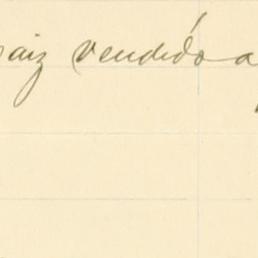 raiz vendido a